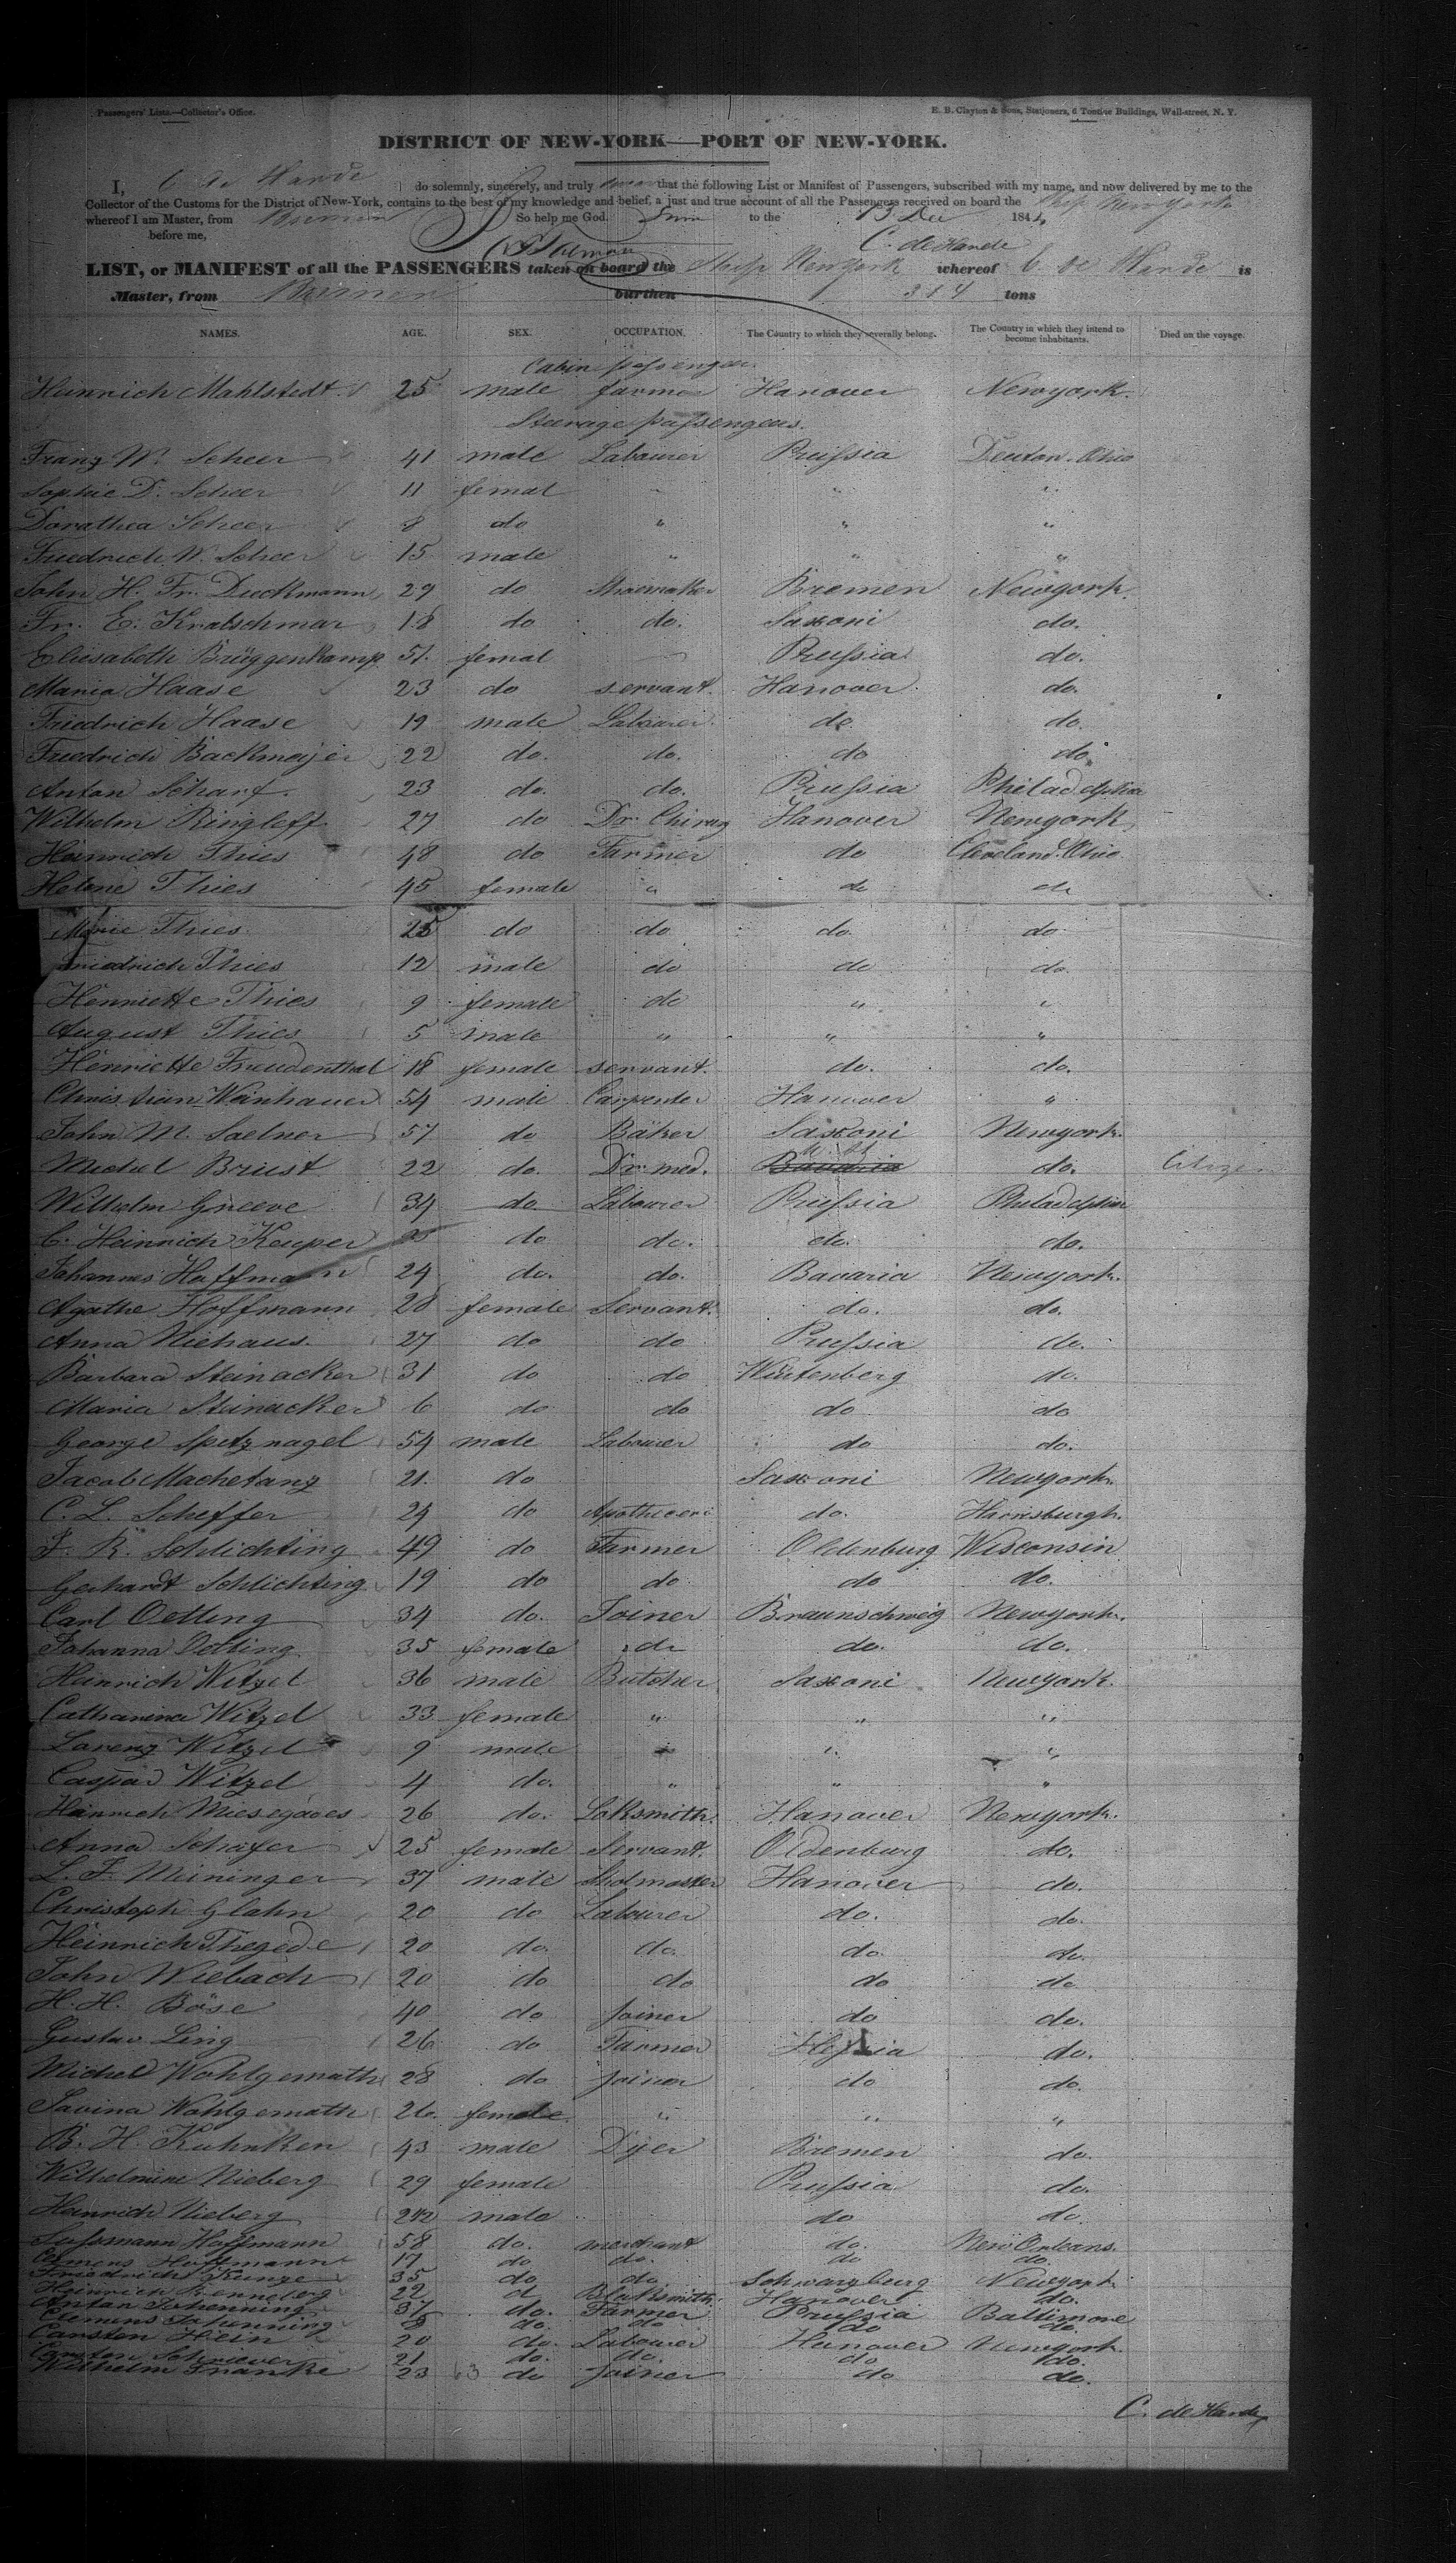 Passengers' Lists.—Collector's Office. E. B. Clayton & Sons, Stationers, 6 Tontine Buildings, Wall-street, N. Y.
DISTRICT OF NEW-YORK—PORT OF NEW-YORK.
I, C de Harde do solemnly, sincerely, and truly that the following List or Manifest of Passengers, subscribed with my name, and now delivered by me to the
Collector of the Customs for the District of New-York, contains to the best of my knowledge and belief, a just and true account of all the Passengers received on board the Ship Newyork
whereof I am Master, from Bremen So help me God. to the 13 Dec 184
before me, C. de Harde
LIST, or MANIFEST of all the PASSENGERS taken on board the Ship Newyork whereof C de Harde is
Master, from Bremen burthen 314 tons
NAMES. AGE. SEX. OCCUPATION. The Country to which they severally belong. The Country in which they intend to become inhabitants. Died on the voyage.
Cabin passenger.
Heinrich Mahlstedt 25 male farmer Hanover Newyork.
Steerage passengers.
Franz W. Scheer 41 male Labourer Prussia Ohio
Sophie D. Scheer 11 femal " "
Dorathea Scheer 8 do " " "
Friedrich W. Scheer 15 male " " "
John H. Fr. Dieckmann 29 do Shoemaker Bremen Newyork.
Fr. E. Kratschmar 18 do do. Saxoni do.
Elisabeth Brüggenkamp 51. femal — Prussia do.
Maria Haase 23 do servant. Hanover. do.
Friedrich Haase 19 male Labourer do. do.
Friedrich Backmeyer 22 do. do. do do.
Anton Scharf. 23 do. do. Prussia Philadelphia
Wilhelm Ringleff 27 do Dr. Chirug Hanover Newyork
Heinrich Thies 48 do Farmer do Cleveland. Ohio
Helene Thies 45 female " do do
Marie Thies 25 do do do. do
Friedrich Thies 12 male do do do.
Henriette Thies 9 female do " "
August Thies 5 male " " "
Henriette Freudenthal 18 female servant. do. do.
Christian Weinhauer 54 male Carpenter Hanover "
John M. Soelner 57 do Bäker Saxoni Newyork.
Michel Brüst 22 do. Dr med. Bavaria do. Citizen
Wilhelm Greeve 34 do. Labourer Prussia Philadelphia
C. Heinrich Keuper do do. do. do.
Johannes Hoffmann 24 do. do. Bavaria Newyork.
Agathe Hoffmann 28 female Servant. do. do.
Anna Niehaus. 27 do do Prussia do.
Barbara Steinacker 31 do do Würtenberg do.
Maria Steinacker 6 do do do do
George Spitznagel 54 male Labourer do do.
Jacob Machetanz 21. do Saxoni Newyork.
C. L. Scheffer 24 do Apothecari do. Harrisburgh.
F. R. Schlichting 49 do Farmer Oldenburg Wisconsin
Gerhardt Schlichting 19 do do. do do.
Carl Oelting 34 do. Joiner Braunschweig Newyork.
Johanna Oelting. 35 female do do. do.
Heinrich Witzel 36 male Butcher Saxoni Newyork.
Catharina Witzel 33 female " " "
Lorenz Witzel 9 male " " "
Caspar Witzel 4 do. " " "
Heinrich Miesegaes 26 do. Loksmith. Hanover Newyork.
Anna Schäfer 25 female Servant. Oldenburg do.
L. F. Meininger 37 male Sholmaster Hanover do.
Christoph Glahn 20 do Labourer do. do.
Heinrich Thegede 20 do. do. do. do.
John Wiebach 20 do do do do
H. H. Böse 40 do joiner do do.
Gustav Ling 26 do Farmer Hessia do.
Michel Wohlgemuth 28 do joiner do do.
Savina Wohlgemuth 26. female. " " "
B. H. Kuhnken 43 male Dyer Bremen do.
Wilhelmine Nieberg 29 female Prussia do.
Heinrich Nieberg male do do.
Sussmann Hoffmann 58 do. merchant do. New Orleans.
Clemens Hoffmann 17 do do. do do.
Friedrich Runge 35 do do Schwarzburg Newyork
Heinrich Renneberg 22 d Blaksmith. Hanover do.
Anton Schenning 37 do. Farmer Prussia Baltimore
Clemens Schenning 8 do. do do do.
Carsten Hein 20 do. Labourer Hanover Newyork.
Carsten Schriever 21 do. do. do do.
Wilhelm Franke 23 63 do Joiner do do.
C. de Harde